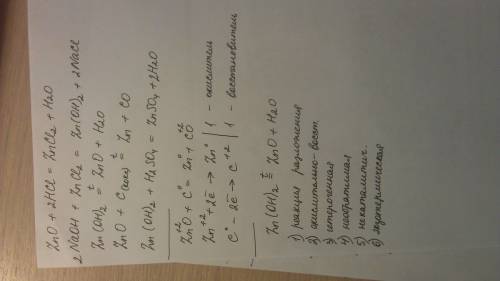 ZnO + 2HCl = ZnCl₂ + H₂O
2NaOH + ZnCl₂ = Zn(OH)₂ + 2NaCl
Zn(OH)₂ =ᵗ ZnO + H₂O
ZnO + C(изб) =ᵗ Zn + CO
Zn(OH)₂ + H₂SO₄ = ZnSO₄ + 2H₂O
Zn⁺²O + C⁰ = Zn⁰ + C⁺²O
Zn⁺² + 2ē → Zn⁰ | 1 - окислитель
C⁰ - 2ē → C⁺² | 1 - восстановитель
Zn(OH)₂ =ᵗ ZnO + H₂O
1) реакция разложения
2) окислительно-восст.
3) гетерогенная
4) необратимая
5) некаталитич.
6)